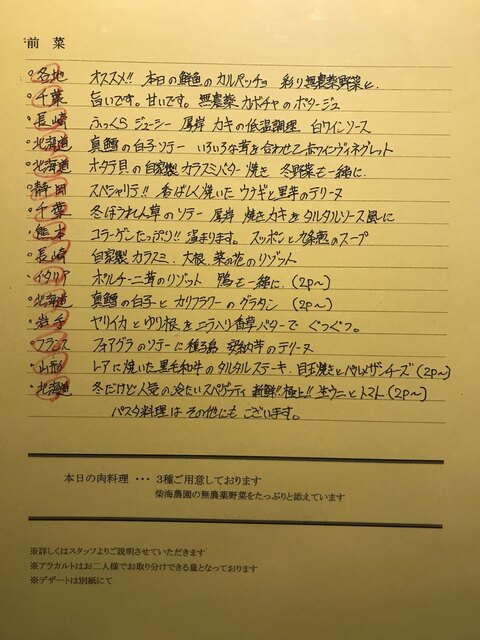 前 菜
・各地 オススメ!! 本日の鮮魚のカルパッチョ 彩り無農薬野菜と.
・千葉 旨いです。甘いです。無農薬カボチャのポタージュ
・長崎 ふっくらジューシー 厚岸カキの低温調理 白ワインソース
・北海道 真鱈の白子ソテー いろいろな茸を合わせて赤ワインヴィネグレット
・北海道 ホタテ貝の自家製カラスミバター焼き 冬野菜も一緒に.
・静岡 スペシャリテ!! 香ばしく焼いたウナギと里芋のテリーヌ
・千葉 冬ほうれん草のソテー 厚岸焼きカキをタルタルソース風に
・熊本 コラーゲンたっぷり!! 温まります。スッポンと九条葱のスープ
・長崎 自家製カラスミ、大根、菜の花のリゾット
・イタリア ポルチーニ茸のリゾット 鴨も一緒に. (2p〜)
・北海道 真鱈の白子とカリフラワーのグラタン (2p〜)
・岩手 ヤリイカとゆり根をニラ入り香草バターで ぐつぐつ。
・フランス フォアグラのソテーに種子島 安納芋のテリーヌ
・山形 レアに焼いた黒毛和牛のタルタルステーキ.目玉焼きとパルメザンチーズ(2p〜)
・北海道 冬だけど人気の冷たいスパゲティ 新鮮!!極上!! 生ウニとトマト(2p〜)
パスタ料理はその他にもございます。
本日の肉料理 ・・・ 3種ご用意しております
柴海農園の無農薬野菜をたっぷりと添えています
※詳しくはスタッフよりご説明させていただきます
※アラカルトはお二人様でお取り分けできる量となっております
※デザートは別紙にて